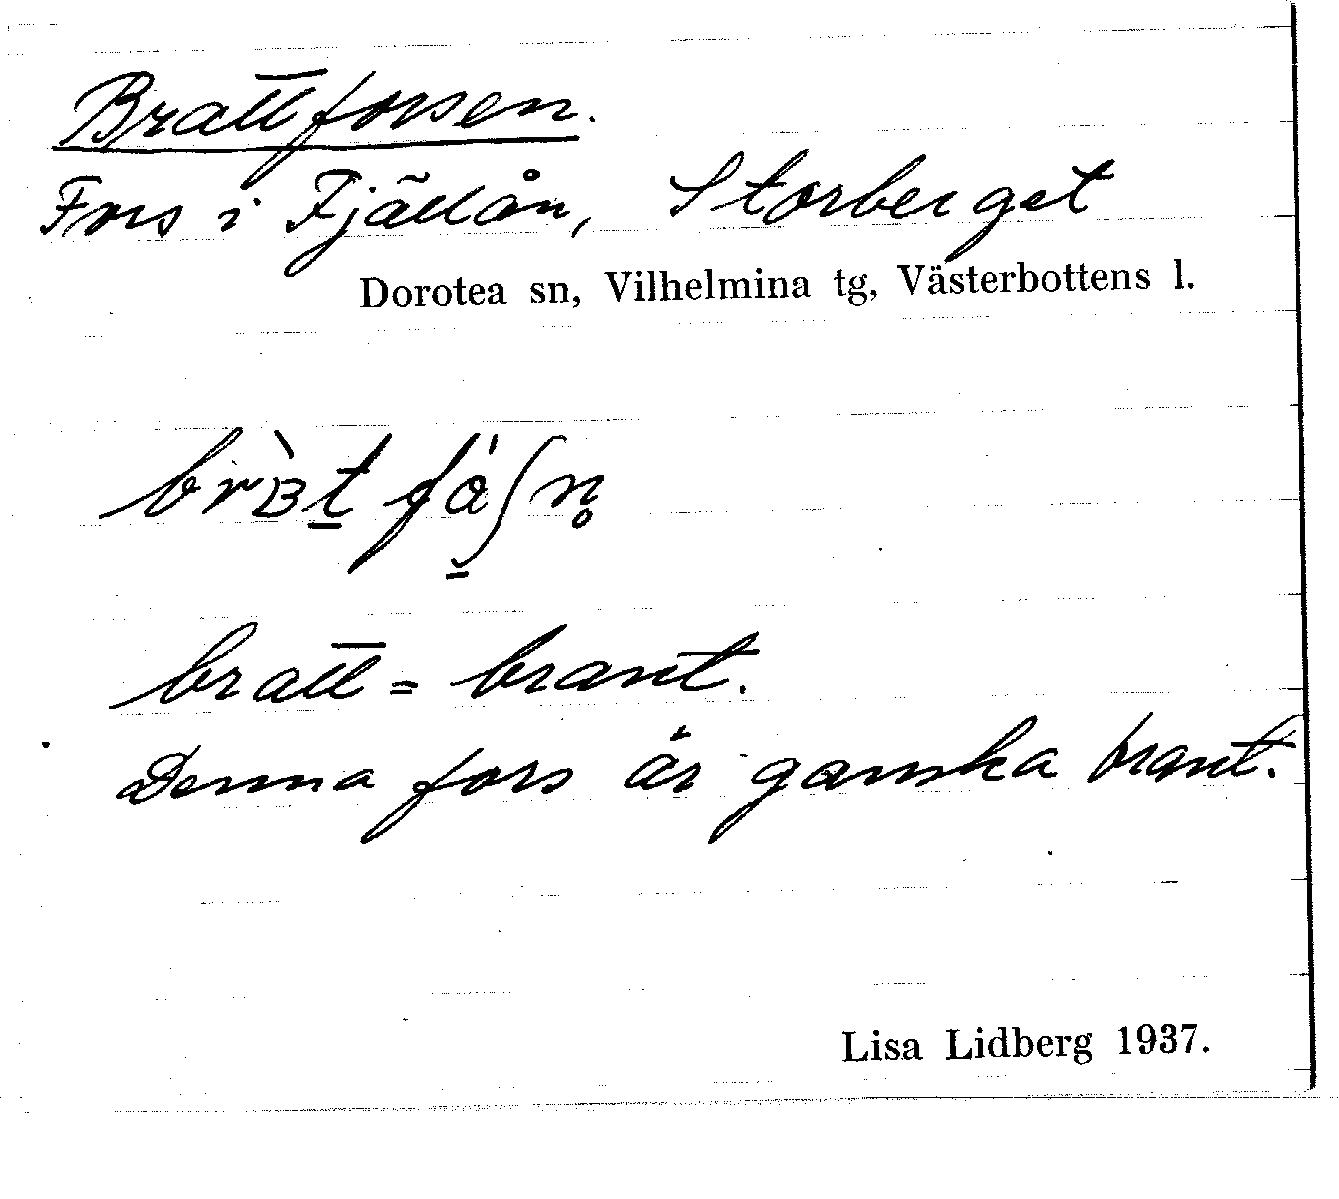 Brattforsen.
Fors i Fjällån, Storberget
Dorotea sn, Vilhelmina tg, Västerbottens l.
bratt = brant.
Denna fors är ganska brant.
Lisa Lidberg 1937.